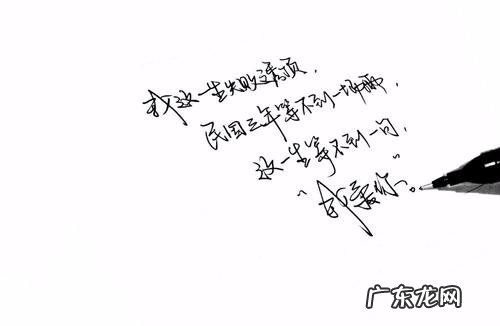 我这一生失败透顶,
民国三年等不到一场雨,
这一生等不到一句,
“我爱你”。
广东龙网